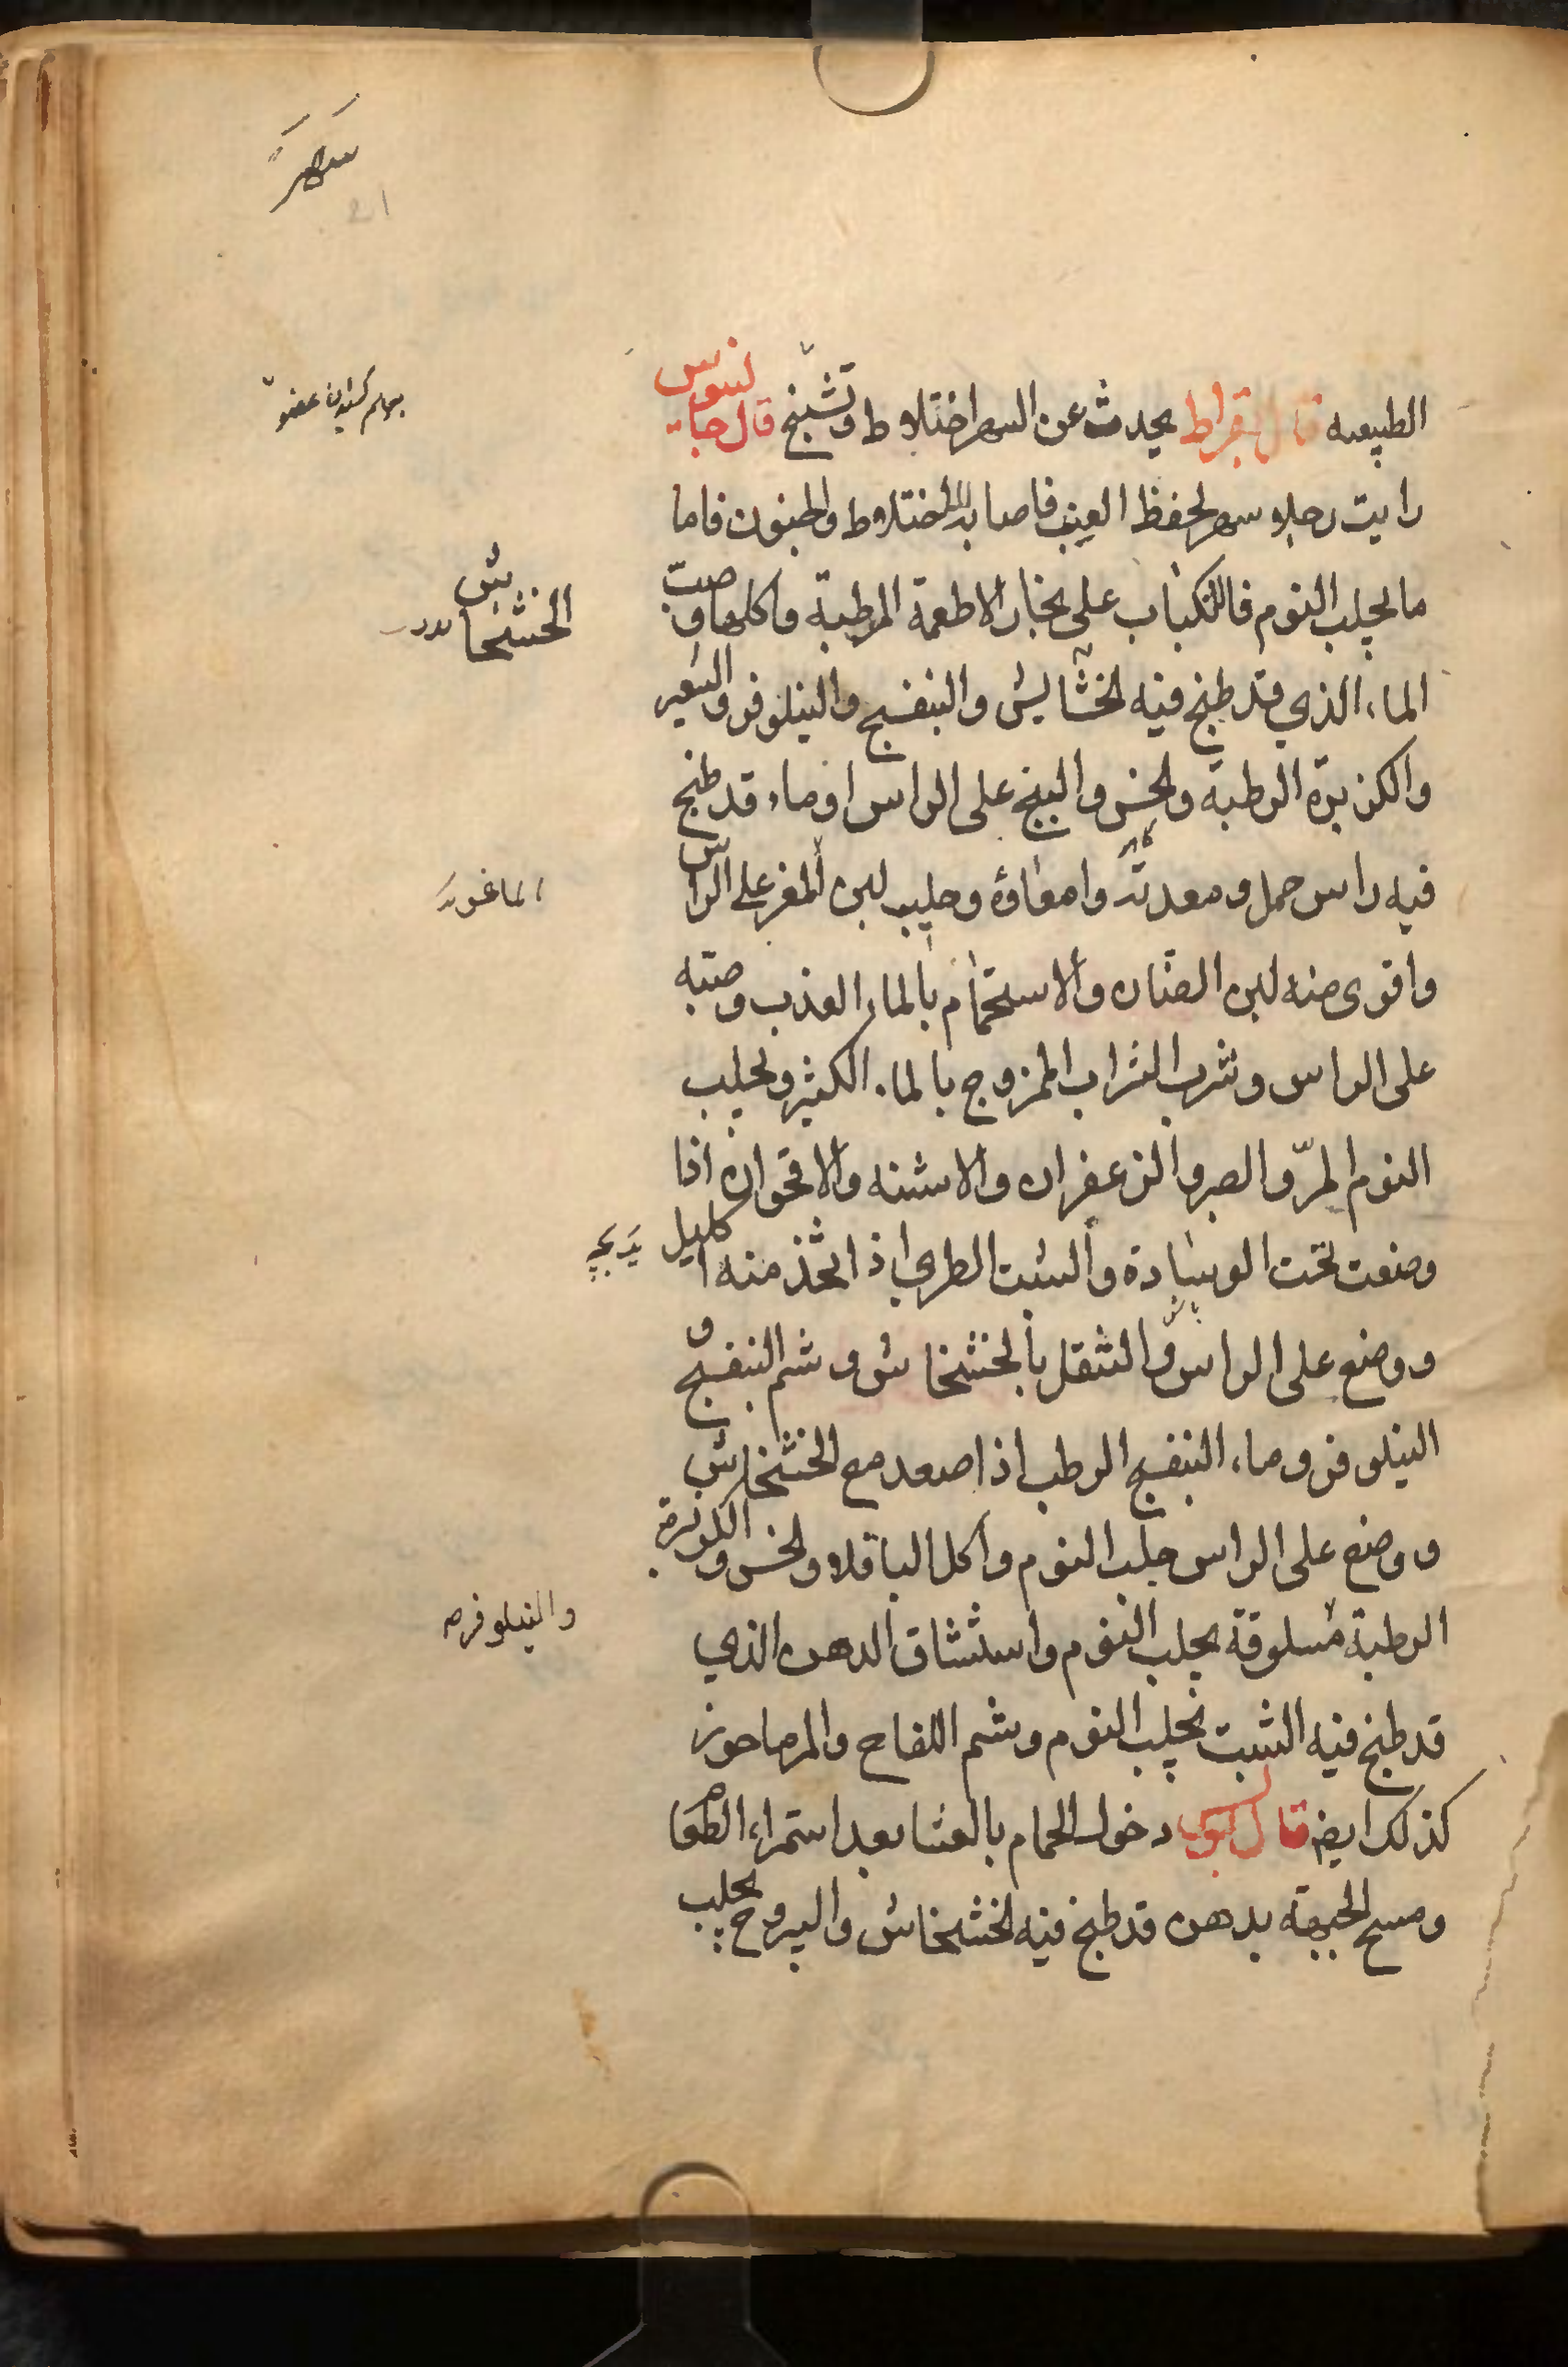 سهر
21
الطبيعه قال بقراط يحدث عن السهر اختلاط وتشنج قال جالينوس
رايت رجلا سهر لحفظ العنب فاصابه الاختلاط والجنون فاما
ما يجلب النوم فالانكباب على بخار الاطعمة المرطبة واكلها وصب
الماء الذي قد طبخ فيه الخشايش والبنفسج والنيلوفر والشعير
والكزبرة الرطبة والخس والبنج على الراس او ماء قد طبخ
فيه راس حمل ومعدته وامعاؤه وحليب لبن المغز على الراس
واقوى منه لبن الضان والاستحمام بالماء العذب وصبه
على الراس وشرب الشراب الممزوج بالماء الكثير ويجلب
النوم المرّ والصبر والزعفران والاشنه والاقحوان اذا
وضعت تحت الوسادة والشبت الطري اذ اتخذ منه اكليل
ووضع على الراس والتنقل بالخشخاش وشم البنفسج و
النيلوفر وماء البنفسج الرطب اذا صعد مع الخشخاش
ووضع على الراس جلب النوم واكل الباقلا والخس والكزبرة
الرطبة مسلوقة يجلب النوم واستنشاق الدهن الذي
قد طبخ فيه الشبت يجلب النوم وشم اللفاح والمرماحوز
كذلك ايضا قال دخول الحمام بالعشا بعد استمراء الطعام
ومسح الجبهة بدهن قد طبخ فيه الخشخاش واليبروح يجلب
الخشخاش
الماغور
والنيلوفر